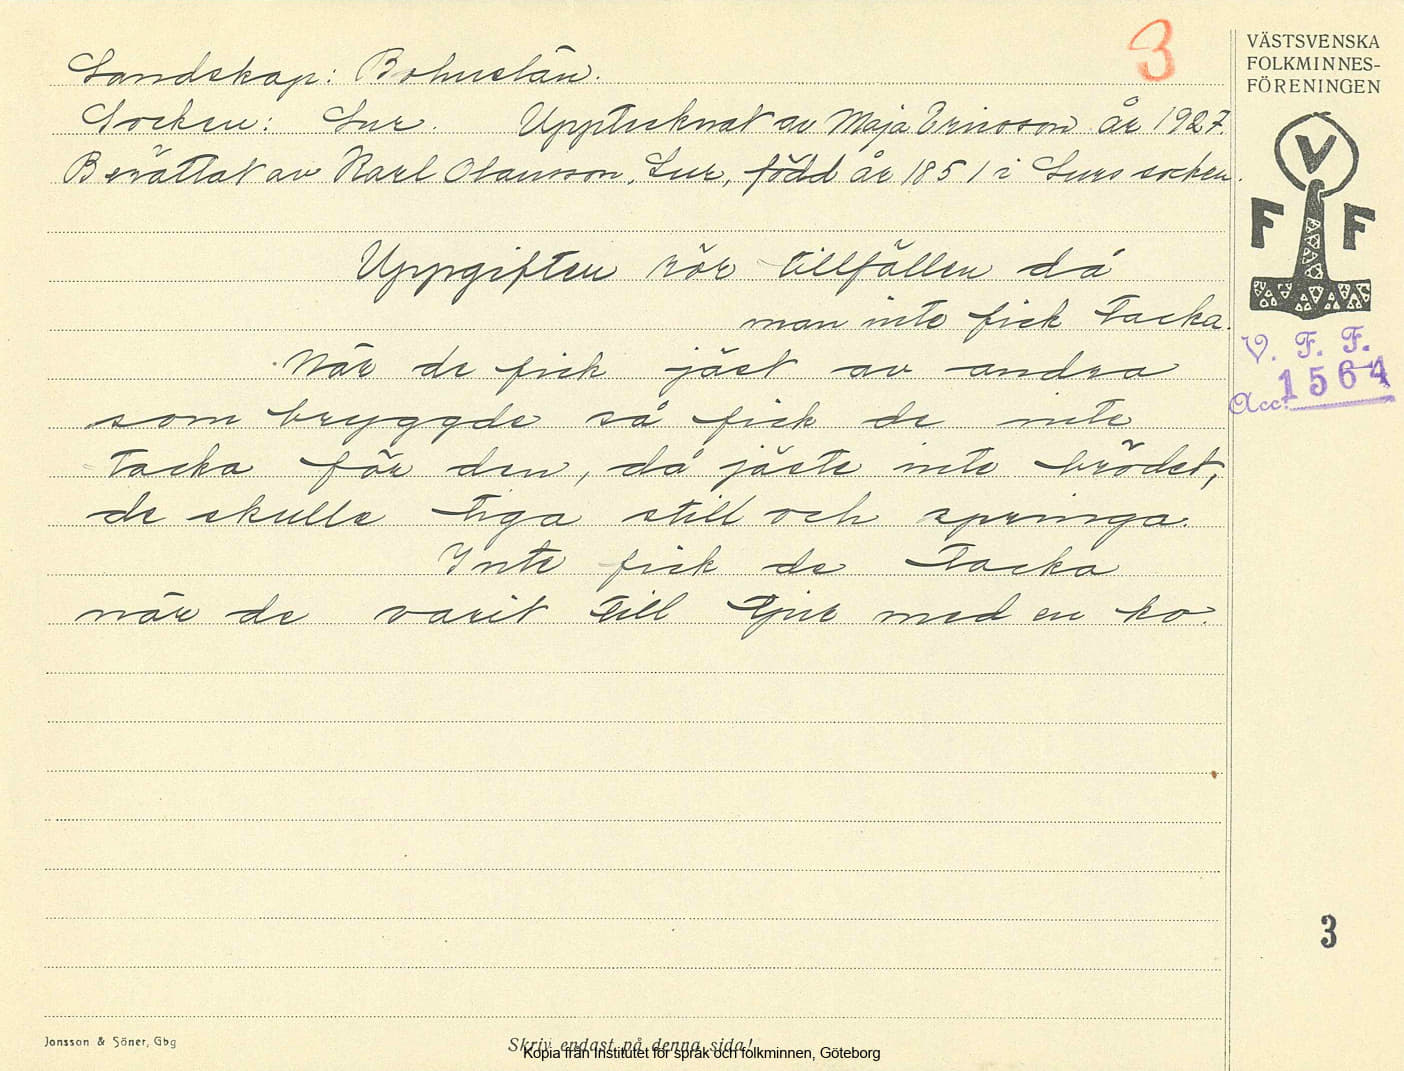 3
VÄSTSVENSKA
FOLKMINNES-
FÖRENINGEN
Landskap: Bohuslän.
Socken: Lur. Upptecknat av Maja Ericsson år 1927.
Berättat av Karl Olausson, Lur, född år 1851 i Lurs socken.
V
F F
V. F. F.
Acc. 1564
Uppgiften rör tillfällen då
man inte fick tacka.
När de fick jäst av andra
som bryggde så fick de inte
tacka för den, då jäste inte brödet,
de skulle tiga still och springa.
Inte fick de tacka
när de varit till tjur med en ko.
3
Jonsson & Söner, Gbg
Skriv endast på denna sida!
Kopia från Institutet för språk och folkminnen, Göteborg